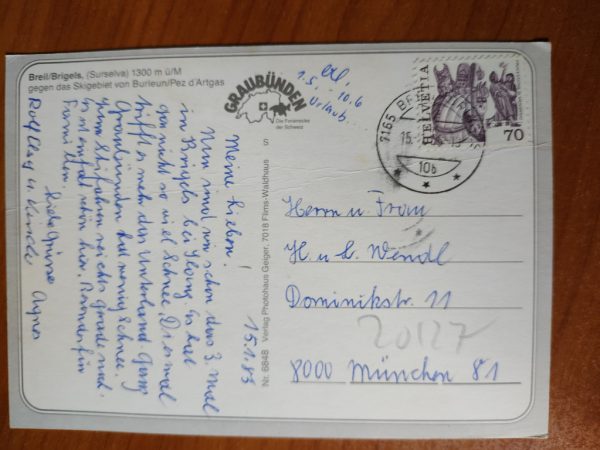 Breil/Brigels, (Surselva) 1300 m ü/M
gegen das Skigebiet von Burleun/Pez d'Artgas
GRAUBÜNDEN
Die Ferienecke
der Schweiz
1.5. 10.6
Urlaub
15.1.83
Meine Lieben!
Nun sind wir schon das 3. Mal
in Brigels bei Es hat
gar nicht so viel Schnee. Diesmal
trifft es mehr das Unterland. Ganz
Graubünden hat wenig Schnee.
zum Skifahren reichts grade und
es ist einfach schön hier. Besonders für
Familien.
Liebe Grüsse
Rolf u. Kinder Agnes
S
Nr. 6848 Verlag Photohaus Geiger, 7018 Flims-Waldhaus
HELVETIA
70
7165
15.
10b
Herrn u. Frau
H. u. L. Wendl
Dominikstr. 11
20127
8000 München 81